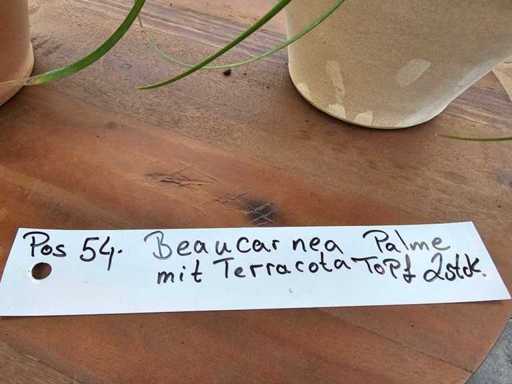 Pos 54. Beaucarnea Palme
mit Terracota Topf 2stck.